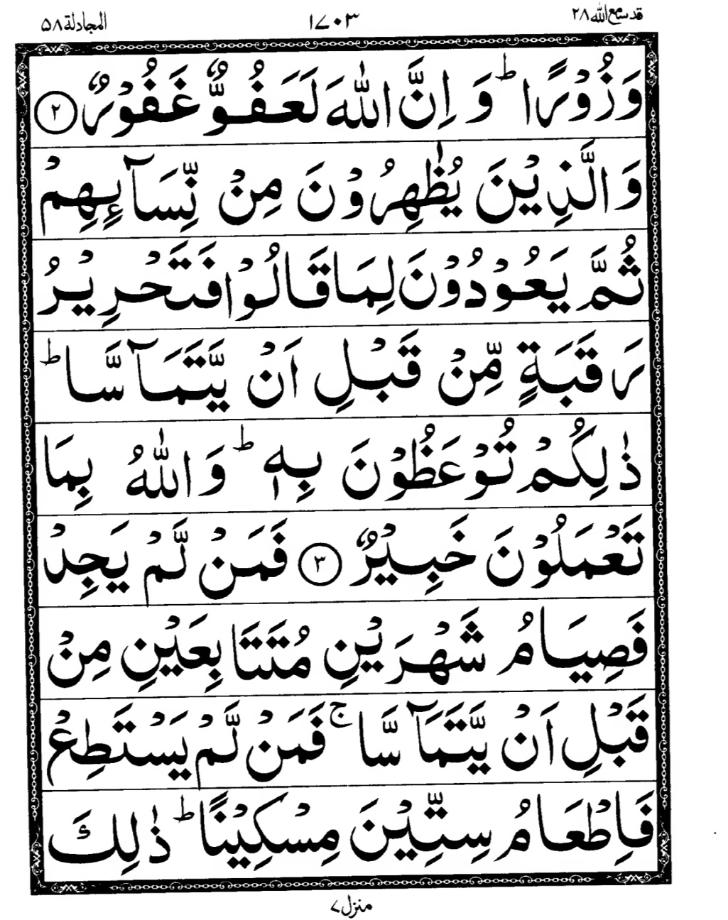 قد سمع الله ۲۸ ۱۷۰۳ المجادلة ۵۸
وَزُوْرًا ؕ وَ اِنَّ اللّٰهَ لَعَفُوٌّ غَفُوْرٌ ۝۲
وَالَّذِيْنَ يُظٰهِرُوْنَ مِنْ نِّسَآىِٕهِمْ
ثُمَّ يَعُوْدُوْنَ لِمَا قَالُوْا فَتَحْرِيْرُ
رَقَبَةٍ مِّنْ قَبْلِ اَنْ يَّتَمَآسَّا ؕ
ذٰلِكُمْ تُوْعَظُوْنَ بِهٖ ؕ وَاللّٰهُ بِمَا
تَعْمَلُوْنَ خَبِيْرٌ ۝۳ فَمَنْ لَّمْ يَجِدْ
فَصِيَامُ شَهْرَيْنِ مُتَتَابِعَيْنِ مِنْ
قَبْلِ اَنْ يَّتَمَآسَّا ۚ فَمَنْ لَّمْ يَسْتَطِعْ
فَاِطْعَامُ سِتِّيْنَ مِسْكِيْنًا ؕ ذٰلِكَ
منزل ۷